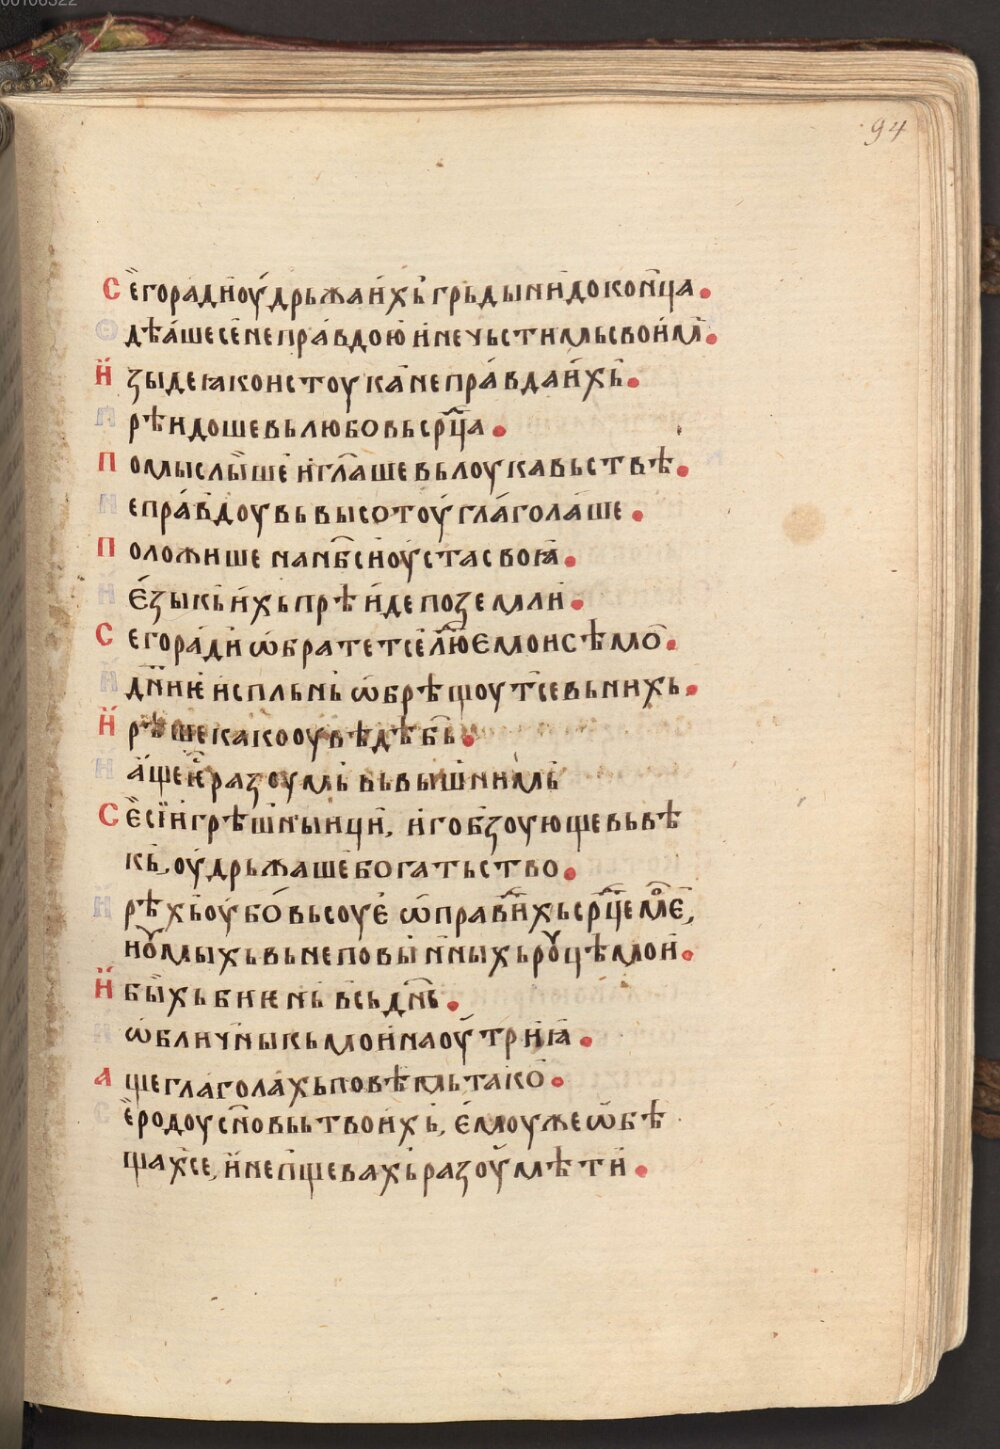 94
Сегѡради оудрьжа ихь грьдыни до конца.
Ѻдѣаше се неправдою и нечьстимь своимь.
Изыде ꙗко ис тоука неправда ихь.
Прѣидоше вь любовь срⷣца.
Помыслише и глаше вь лоукавьствѣ.
Неправдоу вь высотоу глаголаше.
Положише на нб҃си оуста своꙗ.
И єзыкь ихь прѣиде по земли.
Сего ради ѡбратет се людїе мои сѣмо.
И дн҃иѥ испльнь ѡбрѣщоут се вь нихь.
И рѣше како оувѣдѣ б҃ь.
И аще ѥ разоумь вь вышнимь
Се сїи грѣшници, и гобзоующе вь вѣ
кь, оудрьжаше богатьство.
И рѣхь оубо вьсоуе ѡправⷣихь срⷣце моѥ,
и оумыхь вь неповинныхь роуцѣ мои.
И быхь биѥнь вьсь дн҃ь.
И ѡбличны кь мои на оутриꙗ.
Аще глаголахь повѣмь тако.
Се родоу сн҃овь твоихь, ємоуже ѡбѣ
щах се, и непщевахь разоумѣти.